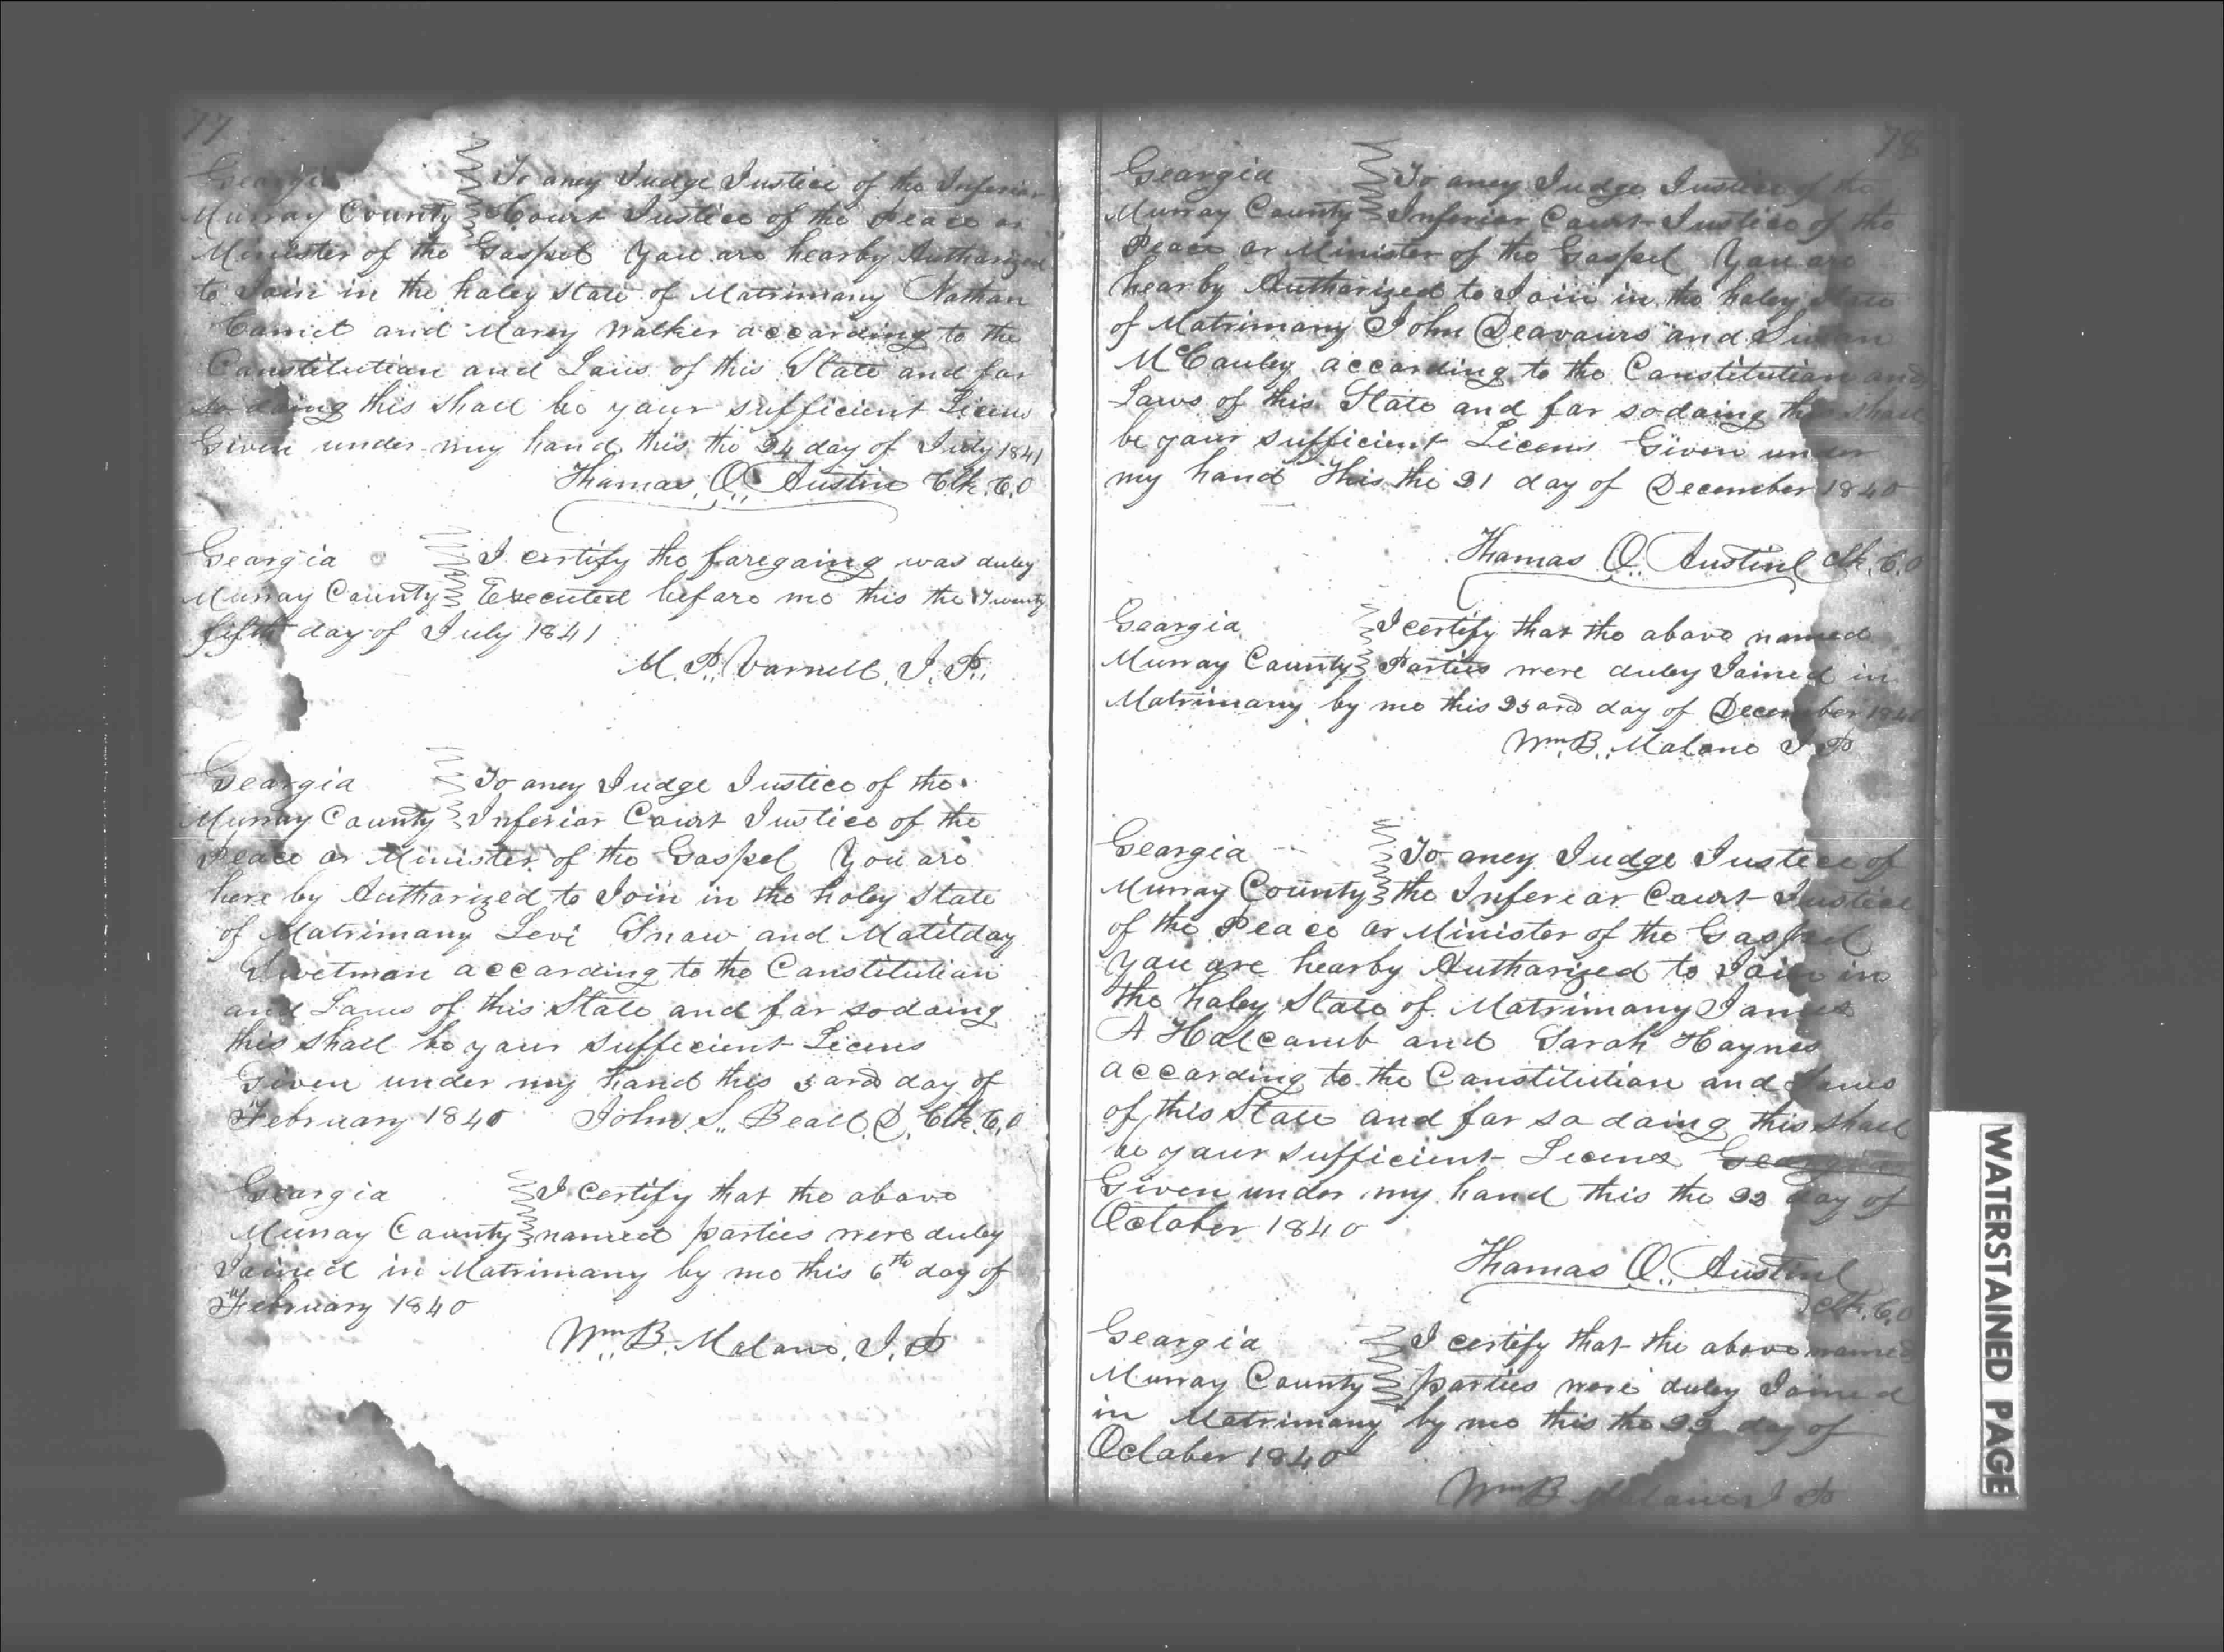 77
Georgia To aney Judge Justice of the Inferior
Murray County Court Justice of the Peace or
Minister of the Gospel You are hearby Authorized
to Join in the holey state of Matrimony Nathan
and Marey Walker according to the
Constitution and Laws of this State and for
so doing this shall be your sufficient Licens
Given under my hand this the 24 day of July 1841
Thomas Q. Austin Clk. C.O
Georgia I certify the foregoing was duley
Murray County Executed before me this the Twenty
fifth day of July 1841
M. P. Varnell. J. P.
Georgia To aney Judge Justice of the
Murray County Inferior Court Justice of the
Peace or Minister of the Gospel You are
here by Authorized to Join in the holey State
of Matrimony Levi Snow and Matilday
Swetman according to the Constitution
and Laws of this State and for sodoing
this shall be your sufficient Licens
Given under my hand this 3 ard day of
February 1840 John S. Beall. D. Clk. C.O
Georgia I certify that the above
Murray County named parties were duley
Joined in Matrimony by me this 6th day of
February 1840
Wm. B. Malone. J. P
78
Georgia To aney Judge Justice of the
Murray County Inferior Court Justice of the
Peace or Minister of the Gospel You are
hearby Authorized to Join in the holey State
of Matrimony John Deavours and Susan
McCauley according to the Constitution and
Laws of this State and for sodoing this shall
be your sufficient Licens Given under
my hand this the 21 day of December 1840
Thomas Q. Austin Clk. C.O
Georgia I certify that the above named
Murray County Parties were duley Joined in
Matrimony by me this 23 ard day of December 1840
Wm. B. Malone J P
Georgia To aney Judge Justice of
Murray County the Inferior Court Justice
of the Peace or Minister of the Gospel
You are hearby Authorized to Join in
the holey State of Matrimony James
A Holcomb and Sarah Haynes
according to the Constitution and Laws
of this State and for so doing this shall
be your sufficient Licens Georgia
Given under my hand this the 22 day of
October 1840
Thomas Q. Austin
Clk. C.O
Georgia I certify that the above named
Murray County parties were duley Joined
in Matrimony by me this the 22 day of
October 1840
Wm B Malone J P
WATERSTAINED PAGE